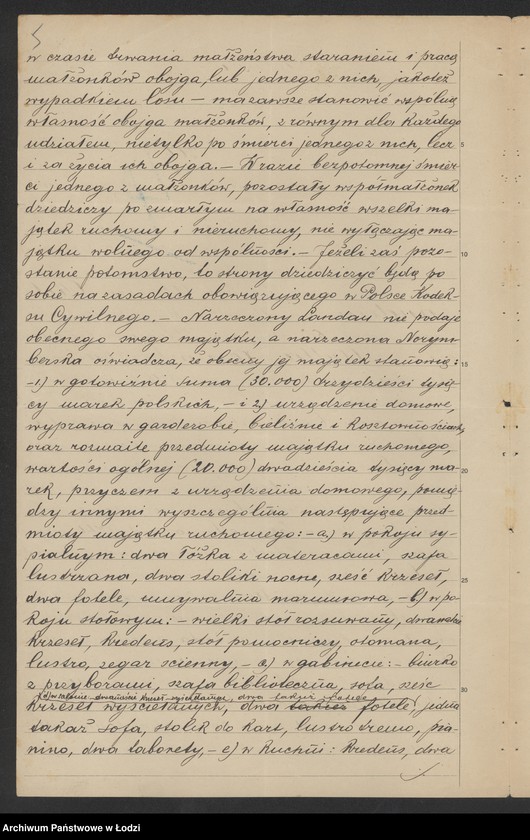 w czasie trwania małżeństwa staraniem i pracą
małżonków obojga, lub jednego z nich, jakoteż
wypadkiem losu — ma zawsze stanowić wspólną
własność obojga małżonków, z równym dla każdego
udziałem, nietylko po śmierci jednego z nich, lecz
5
i za życia ich obojga. — W razie bezpotomnej śmier-
ci jednego z małżonków, pozostały współmałżonek
dziedziczy po zmarłym na własność wszelki ma-
jątek ruchomy i nieruchomy, nie wyłączając ma-
jątku wolnego od wspólności. — Jeżeli zaś pozo-
10
stanie potomstwo, to strony dziedziczyć będą po
sobie na zasadach obowiązującego w Polsce Kodek-
su Cywilnego. — Narzeczony Landau nie podaje
obecnego swego majątku, a narzeczona Norym-
berska oświadcza, że obecny jej majątek stanowią:
15
—1) w gotowiźnie suma (30.000) trzydzieści tysię-
cy marek polskich, — i 2) urządzenie domowe,
wyprawa w garderobie, bieliźnie i kosztownościach,
oraz rozmaite przedmioty majątku ruchomego,
wartości ogólnej (20.000) dwadzieścia tysięcy ma-
20
rek, przyczem z urządzenia domowego, pomię-
dzy innymi wyszczególnia następujące przed-
mioty majątku ruchomego: — a) w pokoju sy-
pialnym: dwa łóżka z materacami, szafa
lustrzana, dwa stoliki nocne, sześć krzeseł,
25
dwa fotele, umywalnia marmurowa, — b) w po-
koju stołowym: — wielki stół rozsuwany, dwanaście
krzeseł, kredens, stół pomocniczy, otomana,
lustro, zegar ścienny, — c) w gabinecie: — biurko
z przyborami, szafa biblioteczna, sofa, sześć
30
d) w salonie dwanaście krzeseł wyściełanych, dwa takież fotele
krzeseł wyściełanych, dwa takież fotele, jedna
takaż sofa, stolik do kart, lustro tremo, pia-
nino, dwa taborety, — e) w kuchni: kredens, dwa
Archiwum Państwowe w Łodzi